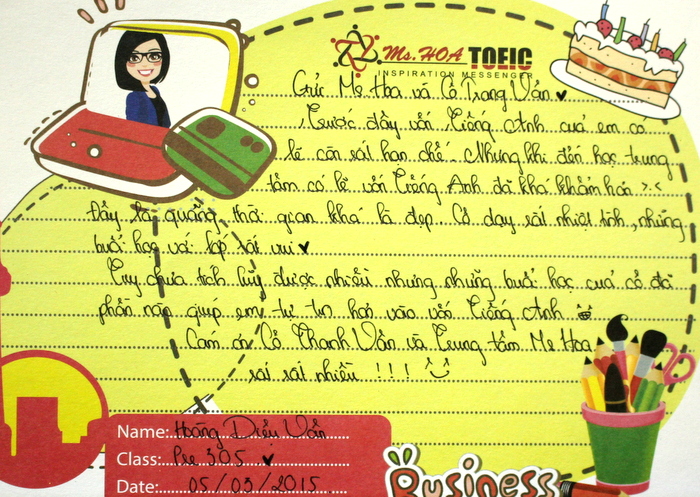 Ms. HOA TOEIC
INSPIRATION MESSENGER
Gửi Ms Hoa và Cô Trang Vân
Trước đây vốn Tiếng Anh của em có
lẽ còn rất hạn chế. Nhưng khi đến học trung
tâm có lẽ vốn Tiếng Anh đã khá khẩm hơn >.<
Đây là quãng thời gian khá là đẹp. Cô dạy rất nhiệt tình, những
buổi học với lớp rất vui
Tuy chưa tích lũy được nhiều nhưng những buổi học của cô đã
phần nào giúp em tự tin hơn vào vốn Tiếng Anh
Cảm ơn Cô Thanh Vân và Trung tâm Ms Hoa
rất rất nhiều !!!
Name: Hoàng Diệu Vân
Class: Pre 305
Date: 05/03/2015
Business